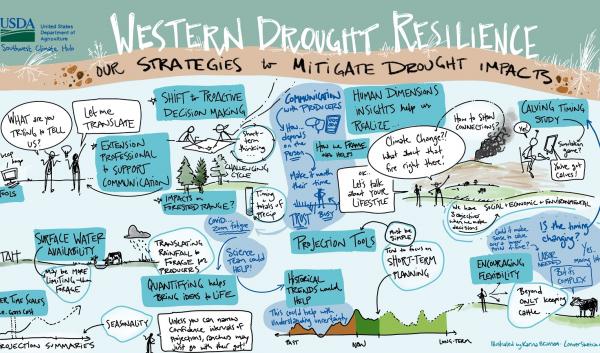 USDA
United States
Department of
Agriculture
Southwest Climate Hub
WESTERN DROUGHT RESILIENCE
OUR STRATEGIES to MITIGATE DROUGHT IMPACTS
WHAT ARE you
TRYING to TELL
US?
Let me
TRANSLATE
SHIFT to PROACTIVE
DECISION MAKING
EXTENSION
PROFESSIONAL
to SUPPORT
COMMUNICATION
TOOLS
Short-
term
thinking
CHALLENGING
CYCLE
IMPACTS on
FORESTED RANGE?
Timing
trials of
Precip
COMMUNICATION
with PRODUCERS
depends
on the
Person
How we FRAME
info HELPS
Make it
worth their
time
TRUST
BUSY
HUMAN DIMENSIONS
INSIGHTS help us
REALIZE
Climate Change?!
What about that
fire right there!
OK...
Let's talk
about YOUR
LIFESTYLE
How to SHOW
CONNECTIONS?
We have
3 objectives
when we make
decisions
SOCIAL + ECONOMIC + ENVIRONMENTAL
CALVING TIMING
STUDY
Yes!
Simulation
game?
You've got
calves!
UTAH
SURFACE WATER
AVAILABILITY
may be MORE
LIMITING than
FORAGE
TRANSLATING
RAINFALL to
FORAGE for
PRODUCERS
COVID...
zoom fatigue
Science
Team could
HELP!
QUANTIFYING helps
BRING IDEAS to LIFE
TIME SCALES
PROJECTION SUMMARIES
SEASONALITY
Unless you can narrow
confidence intervals of
projections, ranchers may
just go with their gut!
PROJECTION TOOLS
Must be
SIMPLE
Tend to focus on
SHORT-TERM
PLANNING
HISTORICAL
TRENDS would
HELP
This could help with
understanding uncertainty
PAST
NOW
LONG-TERM
Is the TIMING
changing?
LABOR
NEEDED
Yes,
But it's
COMPLEX
ENCOURAGING
FLEXIBILITY
Beyond
ONLY keeping
cattle